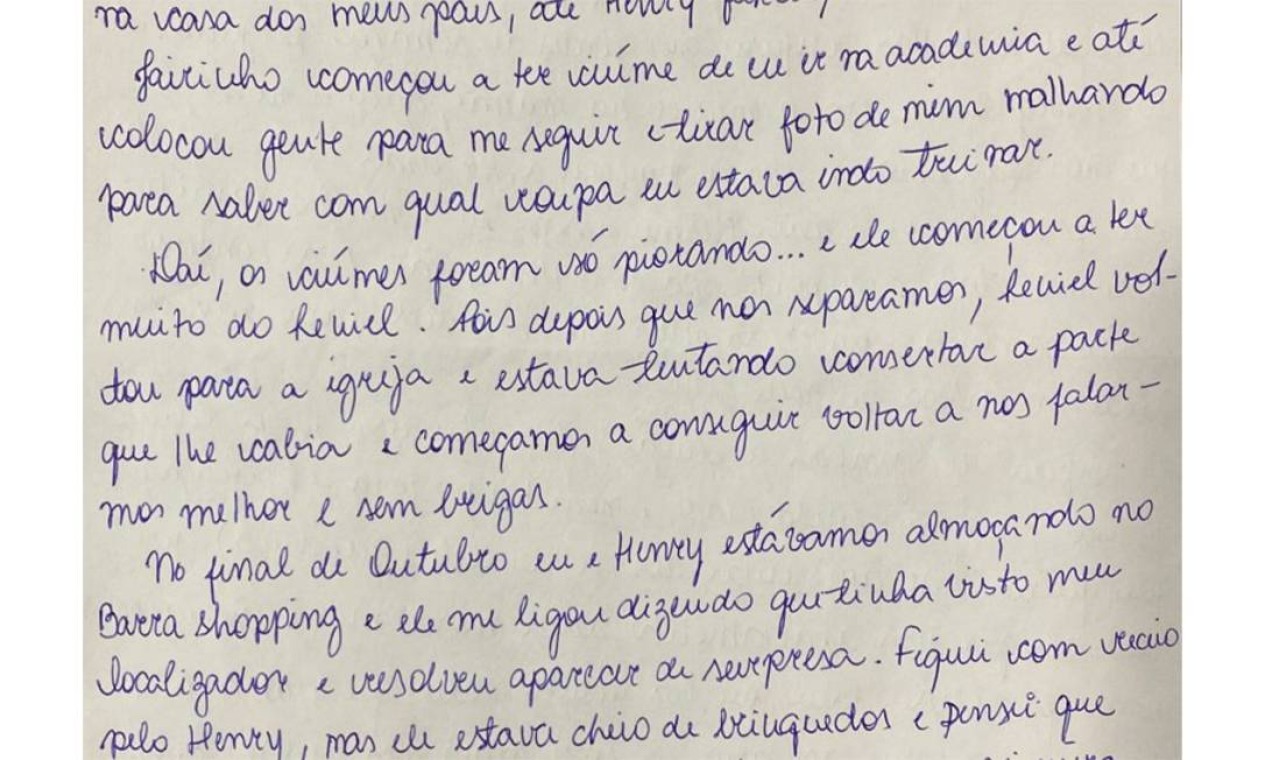 na casa dos meus pais, até Henry
Jairinho começou a ter ciúme de eu ir na academia e até
colocou gente para me seguir e tirar foto de mim malhando
para saber com qual roupa eu estava indo treinar.
Daí, os ciúmes foram só piorando... e ele começou a ter
muito do Leniel. Pois depois que nos separamos, Leniel vol-
tou para a igreja e estava tentando consertar a parte
que lhe cabia e começamos a conseguir voltar a nos falar-
mos melhor e sem brigas.
No final de Outubro eu e Henry estávamos almoçando no
Barra shopping e ele me ligou dizendo que tinha visto meu
localizador e resolveu aparecer de surpresa. Fiquei com receio
pelo Henry, mas ele estava cheio de brinquedos e pensei que